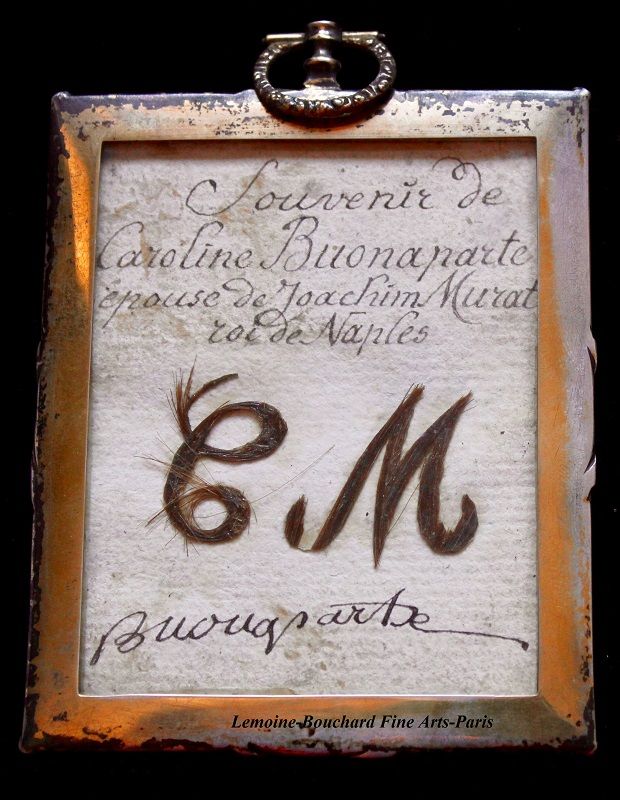 Souvenir de
Caroline Buonaparte
épouse de Joachim Murat
roi de Naples
C M
Buonaparte
Lemoine-Bouchard Fine Arts-Paris